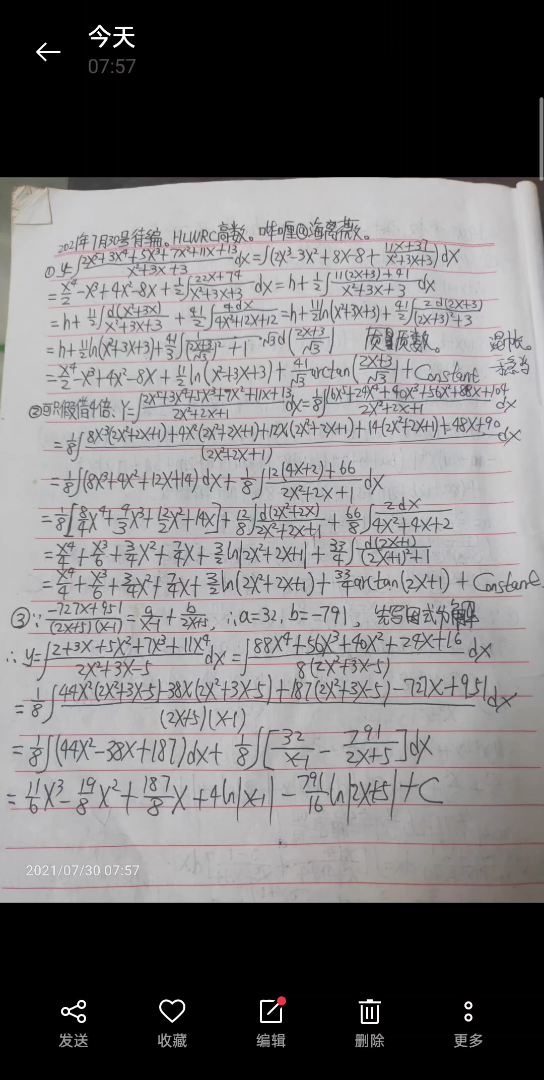 今天
07:57
2021年7月30号待编。HLWRC高数。哔哩@海离薇。
① y=∫(2x⁵+3x⁴+5x³+7x²+11x+13)/(x²+3x+3) dx=∫(2x³-3x²+8x-8+(11x+37)/(x²+3x+3))dx
=x⁴/2-x³+4x²-8x+½∫(22x+74)/(x²+3x+3) dx=h+½∫(11(2x+3)+41)/(x²+3x+3) dx
=h+11/2∫d(x²+3x)/(x²+3x+3)+41/2∫4dx/(4x²+12x+12)=h+11/2 ln(x²+3x+3)+41/2∫2d(2x+3)/((2x+3)²+3)
=h+11/2 ln(x²+3x+3)+41/3∫1/(((2x+3)/√3)²+1)·√3d((2x+3)/√3) 质数。
=x⁴/2-x³+4x²-8x+11/2 ln(x²+3x+3)+41/√3 arctan((2x+3)/√3)+Constant
②可以假借4倍、y=∫(2x⁵+3x⁴+5x³+7x²+11x+13)/(2x²+2x+1) dx=⅛∫(16x⁵+24x⁴+40x³+56x²+88x+104)/(2x²+2x+1) dx
=⅛∫(8x³(2x²+2x+1)+4x²(2x²+2x+1)+12x(2x²+2x+1)+14(2x²+2x+1)+48x+90)/(2x²+2x+1) dx
=⅛∫(8x³+4x²+12x+14)dx+⅛∫(12(4x+2)+66)/(2x²+2x+1) dx
=⅛[8/4 x⁴+4/3 x³+12/2 x²+14x]+12/8∫d(2x²+2x)/(2x²+2x+1)+66/8∫2dx/(4x²+4x+2)
=x⁴/4+x³/6+¾x²+7/4 x+3/2 ln|2x²+2x+1|+33/4∫d(2x+1)/((2x+1)²+1)
=x⁴/4+x³/6+¾x²+7/4 x+3/2 ln(2x²+2x+1)+33/4 arctan(2x+1)+Constant.
③∵(-727x+951)/((2x+5)(x-1))=a/(x-1)+b/(2x+5),∴a=32,b=-791,先写因式分解
∴y=∫(2+3x+5x²+7x³+11x⁴)/(2x²+3x-5) dx=∫(88x⁴+56x³+40x²+24x+16)/(8(2x²+3x-5)) dx
=⅛∫(44x²(2x²+3x-5)-38x(2x²+3x-5)+187(2x²+3x-5)-727x+951)/((2x+5)(x-1)) dx
=⅛∫(44x²-38x+187)dx+⅛∫[32/(x-1)-791/(2x+5)]dx
=11/6 x³-19/8 x²+187/8 x+4ln|x-1|-791/16 ln|2x+5|+C
2021/07/30 07:57
发送 收藏 编辑 删除 更多